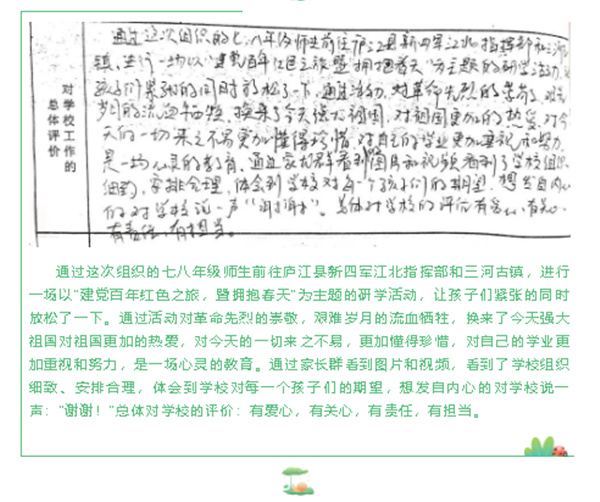 对学校工作的
总体评价
通过这次组织的七、八年级师生前往庐江县新四军江北指挥部和三河
镇,进行一场以"建党百年红色之旅暨拥抱春天"为主题的研学活动,
孩子们紧张的同时放松了一下。通过活动,对革命先烈的崇尚,艰难
岁月的流血牺牲,换来了今天强大祖国,对祖国更加的热爱,对今
天的一切来之不易更加懂得珍惜,对自己的学业更加重视和努力,
是一场心灵的教育。通过家长群看到图片和视频看到了学校组织
细致,安排合理,体会到学校对每一个孩子们的期望,想发自内心
的对学校说一声"谢谢"。总体对学校的评价有爱心,有关心,
有责任,有担当。
通过这次组织的七八年级师生前往庐江县新四军江北指挥部和三河古镇,进行
一场以"建党百年红色之旅,暨拥抱春天"为主题的研学活动,让孩子们紧张的同时
放松了一下。通过活动对革命先烈的崇敬,艰难岁月的流血牺牲,换来了今天强大
祖国对祖国更加的热爱,对今天的一切来之不易,更加懂得珍惜,对自己的学业更
加重视和努力,是一场心灵的教育。通过家长群看到图片和视频,看到了学校组织
细致、安排合理,体会到学校对每一个孩子们的期望,想发自内心的对学校说一
声:"谢谢!"总体对学校的评价:有爱心,有关心,有责任,有担当。